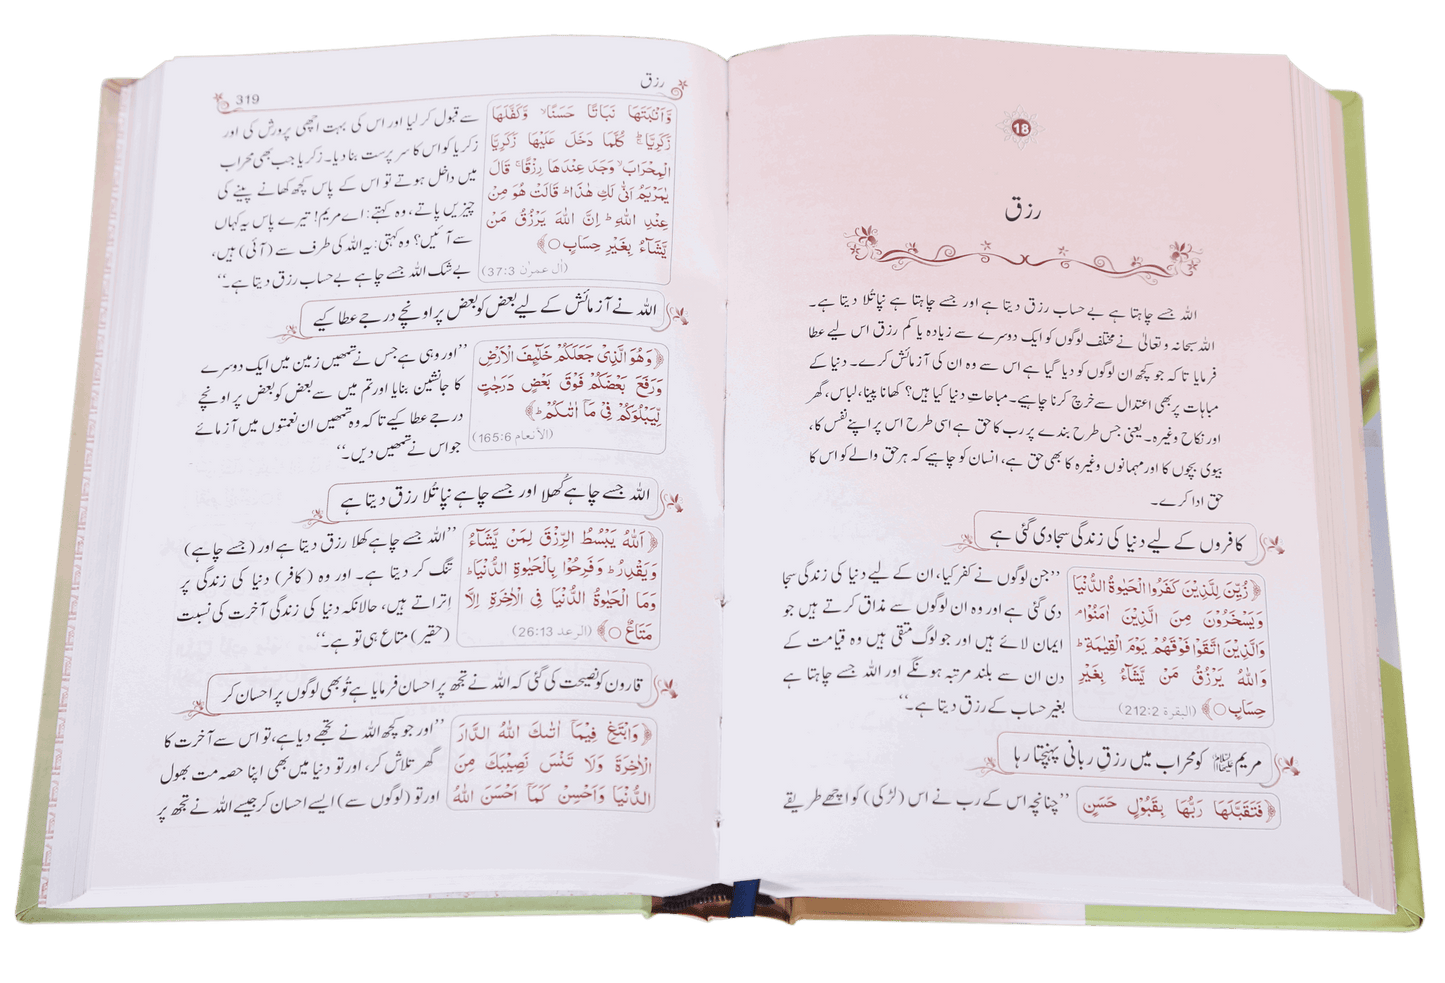 18
رزق
اللہ جسے چاہتا ہے بے حساب رزق دیتا ہے اور جسے چاہتا ہے نپا تُلا دیتا ہے۔
اللہ سبحانہ و تعالیٰ نے مختلف لوگوں کو ایک دوسرے سے زیادہ یا کم رزق اس لیے عطا
فرمایا تاکہ جو کچھ ان لوگوں کو دیا گیا ہے اس سے وہ ان کی آزمائش کرے۔ دنیا کے
مباحات پر بھی اعتدال سے خرچ کرنا چاہیے۔ مباحاتِ دنیا کیا ہیں؟ کھانا پینا، لباس، گھر
اور نکاح وغیرہ۔ یعنی جس طرح بندے پر رب کا حق ہے اسی طرح اس پر اپنے نفس کا،
بیوی بچوں کا اور مہمانوں وغیرہ کا بھی حق ہے، انسان کو چاہیے کہ ہر حق والے کو اس کا
حق ادا کرے۔
کافروں کے لیے دنیا کی زندگی سجا دی گئی ہے
﴿ زُيِّنَ لِلَّذِيْنَ كَفَرُوا الْحَيٰوةُ الدُّنْيَا
وَيَسْخَرُوْنَ مِنَ الَّذِيْنَ اٰمَنُوْا ۘ
وَالَّذِيْنَ اتَّقَوْا فَوْقَهُمْ يَوْمَ الْقِيٰمَةِ ؕ
وَاللّٰهُ يَرْزُقُ مَنْ يَّشَآءُ بِغَيْرِ
حِسَابٍ ۝﴾ (البقرة 212:2)
’’جن لوگوں نے کفر کیا، ان کے لیے دنیا کی زندگی سجا
دی گئی ہے اور وہ ان لوگوں سے مذاق کرتے ہیں جو
ایمان لائے ہیں اور جو لوگ متقی ہیں وہ قیامت کے
دن ان سے بلند مرتبہ ہونگے اور اللہ جسے چاہتا ہے
بغیر حساب کے رزق دیتا ہے۔‘‘
مریم علیہا السلام کو محراب میں رزقِ ربانی پہنچتا رہا
﴿ فَتَقَبَّلَهَا رَبُّهَا بِقَبُوْلٍ حَسَنٍ
’’چنانچہ اس کے رب نے اس (لڑکی) کو اچھے طریقے
رزق
319
وَّاَنْۢبَتَهَا نَبَاتًا حَسَنًا ۙ وَّكَفَّلَهَا
زَكَرِيَّا ؕ كُلَّمَا دَخَلَ عَلَيْهَا زَكَرِيَّا
الْمِحْرَابَ ۙ وَجَدَ عِنْدَهَا رِزْقًا ۚ قَالَ
يٰمَرْيَمُ اَنّٰى لَكِ هٰذَا ؕ قَالَتْ هُوَ مِنْ
عِنْدِ اللّٰهِ ؕ اِنَّ اللّٰهَ يَرْزُقُ مَنْ
يَّشَآءُ بِغَيْرِ حِسَابٍ ۝﴾
(اٰل عمرٰن 37:3)
سے قبول کر لیا اور اس کی بہت اچھی پرورش کی اور
زکریا کو اس کا سرپرست بنا دیا۔ زکریا جب بھی محراب
میں داخل ہوتے تو اس کے پاس کچھ کھانے پینے کی
چیزیں پاتے، وہ کہتے: اے مریم! تیرے پاس یہ کہاں
سے آئیں؟ وہ کہتی: یہ اللہ کی طرف سے (آئی) ہیں،
بے شک اللہ جسے چاہے بے حساب رزق دیتا ہے۔‘‘
اللہ نے آزمائش کے لیے بعض کو بعض پر اونچے درجے عطا کیے
﴿ وَهُوَ الَّذِيْ جَعَلَكُمْ خَلٰٓئِفَ الْاَرْضِ
وَرَفَعَ بَعْضَكُمْ فَوْقَ بَعْضٍ دَرَجٰتٍ
لِّيَبْلُوَكُمْ فِيْ مَاۤ اٰتٰىكُمْ ؕ﴾
(الأنعام 165:6)
’’اور وہی ہے جس نے تمھیں زمین میں ایک دوسرے
کا جانشین بنایا اور تم میں سے بعض کو بعض پر اونچے
درجے عطا کیے تاکہ وہ تمھیں ان نعمتوں میں آزمائے
جو اس نے تمھیں دیں۔‘‘
اللہ جسے چاہے کُھلا اور جسے چاہے نپا تُلا رزق دیتا ہے
﴿ اَللّٰهُ يَبْسُطُ الرِّزْقَ لِمَنْ يَّشَآءُ
وَيَقْدِرُ ؕ وَفَرِحُوْا بِالْحَيٰوةِ الدُّنْيَا ؕ
وَمَا الْحَيٰوةُ الدُّنْيَا فِي الْاٰخِرَةِ اِلَّا
مَتَاعٌ ۝﴾ (الرعد 26:13)
’’اللہ جسے چاہے کھلا رزق دیتا ہے اور (جسے چاہے)
تنگ کر دیتا ہے۔ اور وہ (کافر) دنیا کی زندگی پر
اِتراتے ہیں، حالانکہ دنیا کی زندگی آخرت کی نسبت
(حقیر) متاع ہی تو ہے۔‘‘
قارون کو نصیحت کی گئی کہ اللہ نے تجھ پر احسان فرمایا ہے تُو بھی لوگوں پر احسان کر
﴿ وَابْتَغِ فِيْمَاۤ اٰتٰىكَ اللّٰهُ الدَّارَ
الْاٰخِرَةَ وَلَا تَنْسَ نَصِيْبَكَ مِنَ
الدُّنْيَا وَاَحْسِنْ كَمَاۤ اَحْسَنَ اللّٰهُ
’’اور جو کچھ اللہ نے تجھے دیا ہے، تو اس سے آخرت کا
گھر تلاش کر، اور تو دنیا میں بھی اپنا حصہ مت بھول
اور تو (لوگوں سے) ایسے احسان کر جیسے اللہ نے تجھ پر